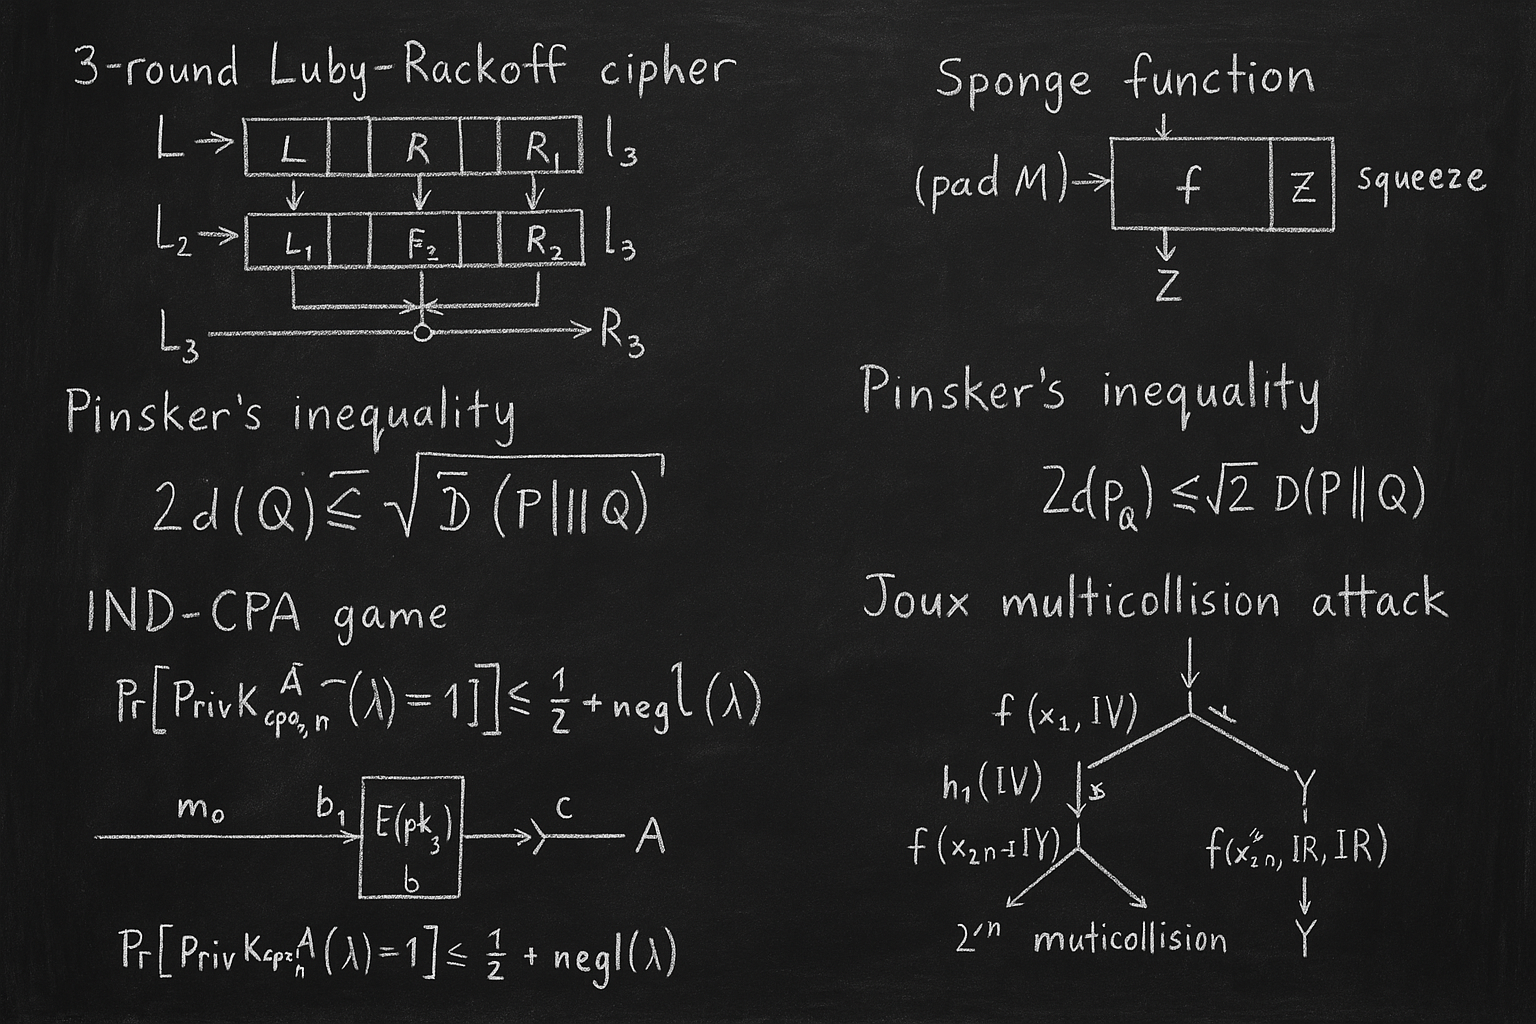 3-round Luby-Rackoff cipher
L → L R R₁ l₃
L₂ → L₁ F₂ R₂ l₃
L₃ R₃
Pinsker's inequality
2d(Q) ≤ √D (P|||Q)
IND-CPA game
Pr[PrivK (λ) = 1]] ≤ 1/2 + negl(λ)
m₀ b₁ E(pk₃) c A
b
Pr[PrivK A (λ)=1] ≤ 1/2 + negl(λ)
Sponge function
(pad M) → f Z squeeze
Z
Pinsker's inequality
2d(P_Q) ≤ √2 D(P||Q)
Joux multicollision attack
f(x₁, IV)
h₁(IV) Y
f(x₂ₙ₋IIY) f(x₂ₙ, IR, IR)
2′ⁿ muticollision Y